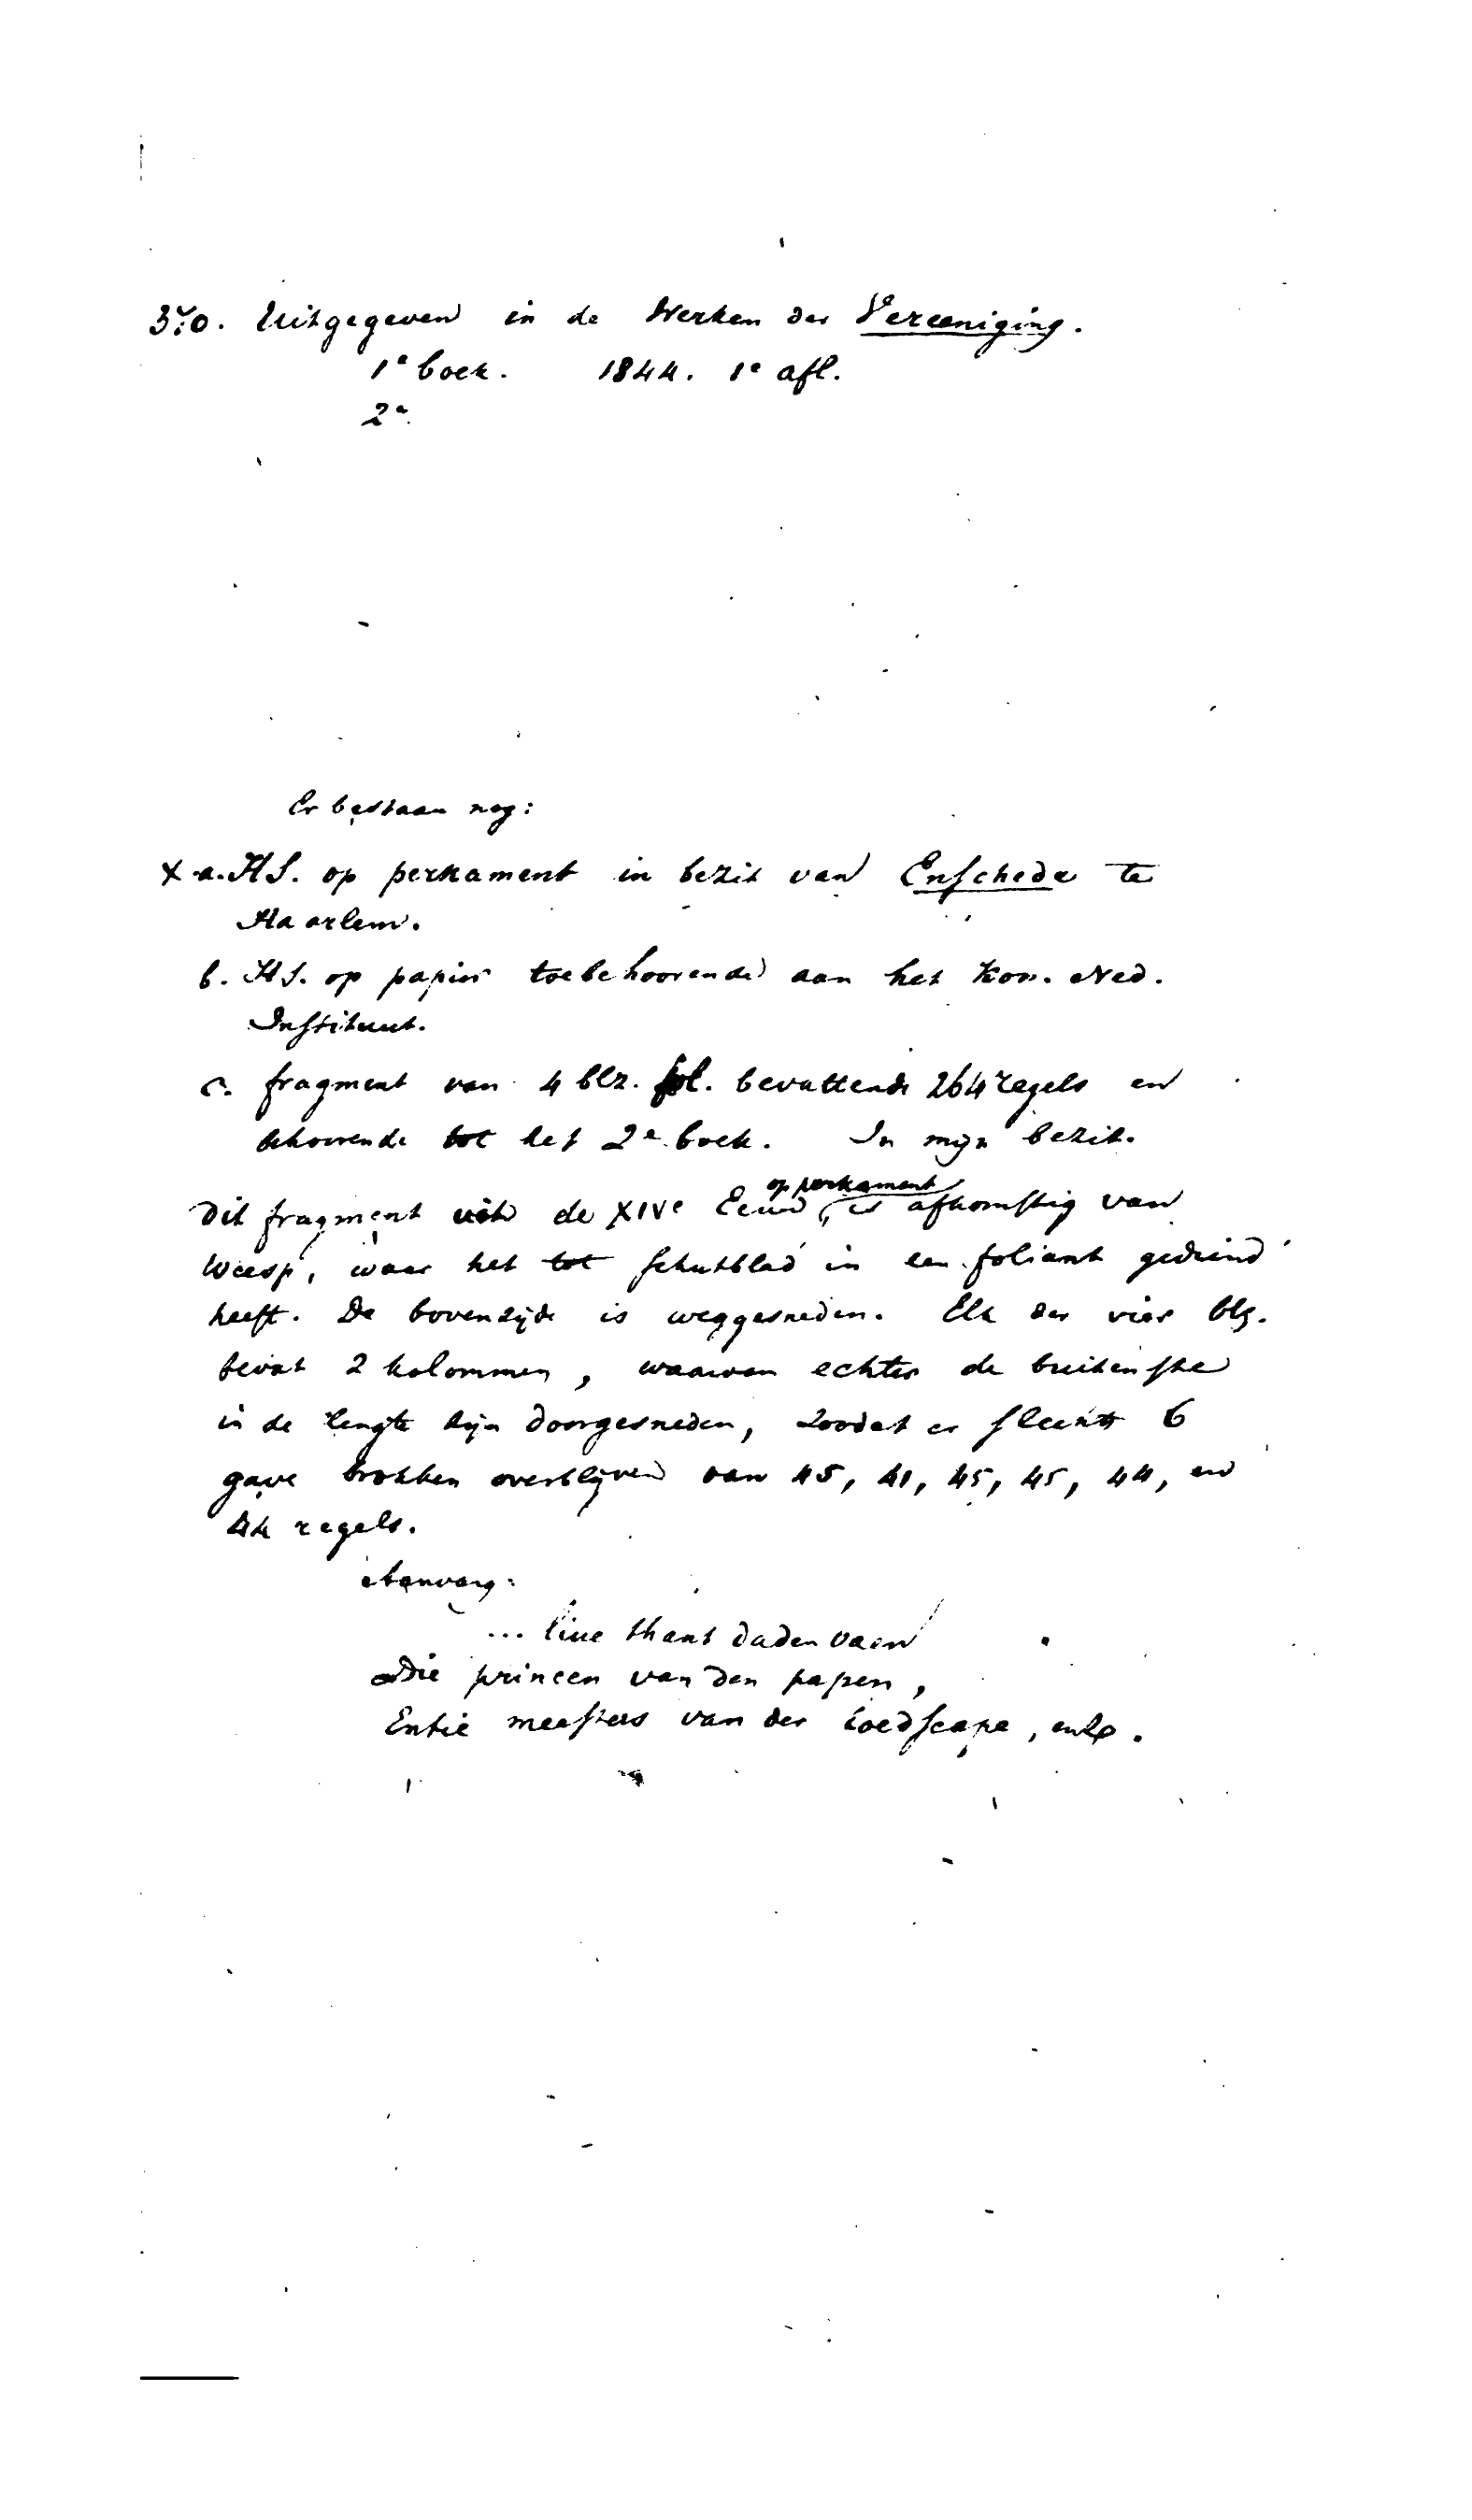 3:o. Uitgegeven in de Werken der Vereeniging.
1e boek. 1844. 1e afl.
2e
Er bestaan nog:
x a. HS. op perkament in bezit van Enschede te
Haarlem.
b. HS. op papier toebehoorende aan het Kon. Ned.
Instituut.
c. fragment van 4 blz. fol. bevattende 264 regels en
behoorende tot het 2e boek. In mijn bezit.
op perkament
Dit fragment uit de XIVe Eeuw, is afkomstig van
Weesp, waar het tot schutblad in een foliant gediend
heeft. De bovenzijde is weggesneden. Elk der vier blz.
bevat 2 kolommen, waarvan echter de buitenste
in de lengte zijn doorgesneden, zoodat er slechts 6
gave brokken overblijven van 45, 41, 45, 45, 44, en
44 regels.
Aanvang:
... thant daden vaen
Die princen van den papen,
Entie meesters van der Joedscape, enz.